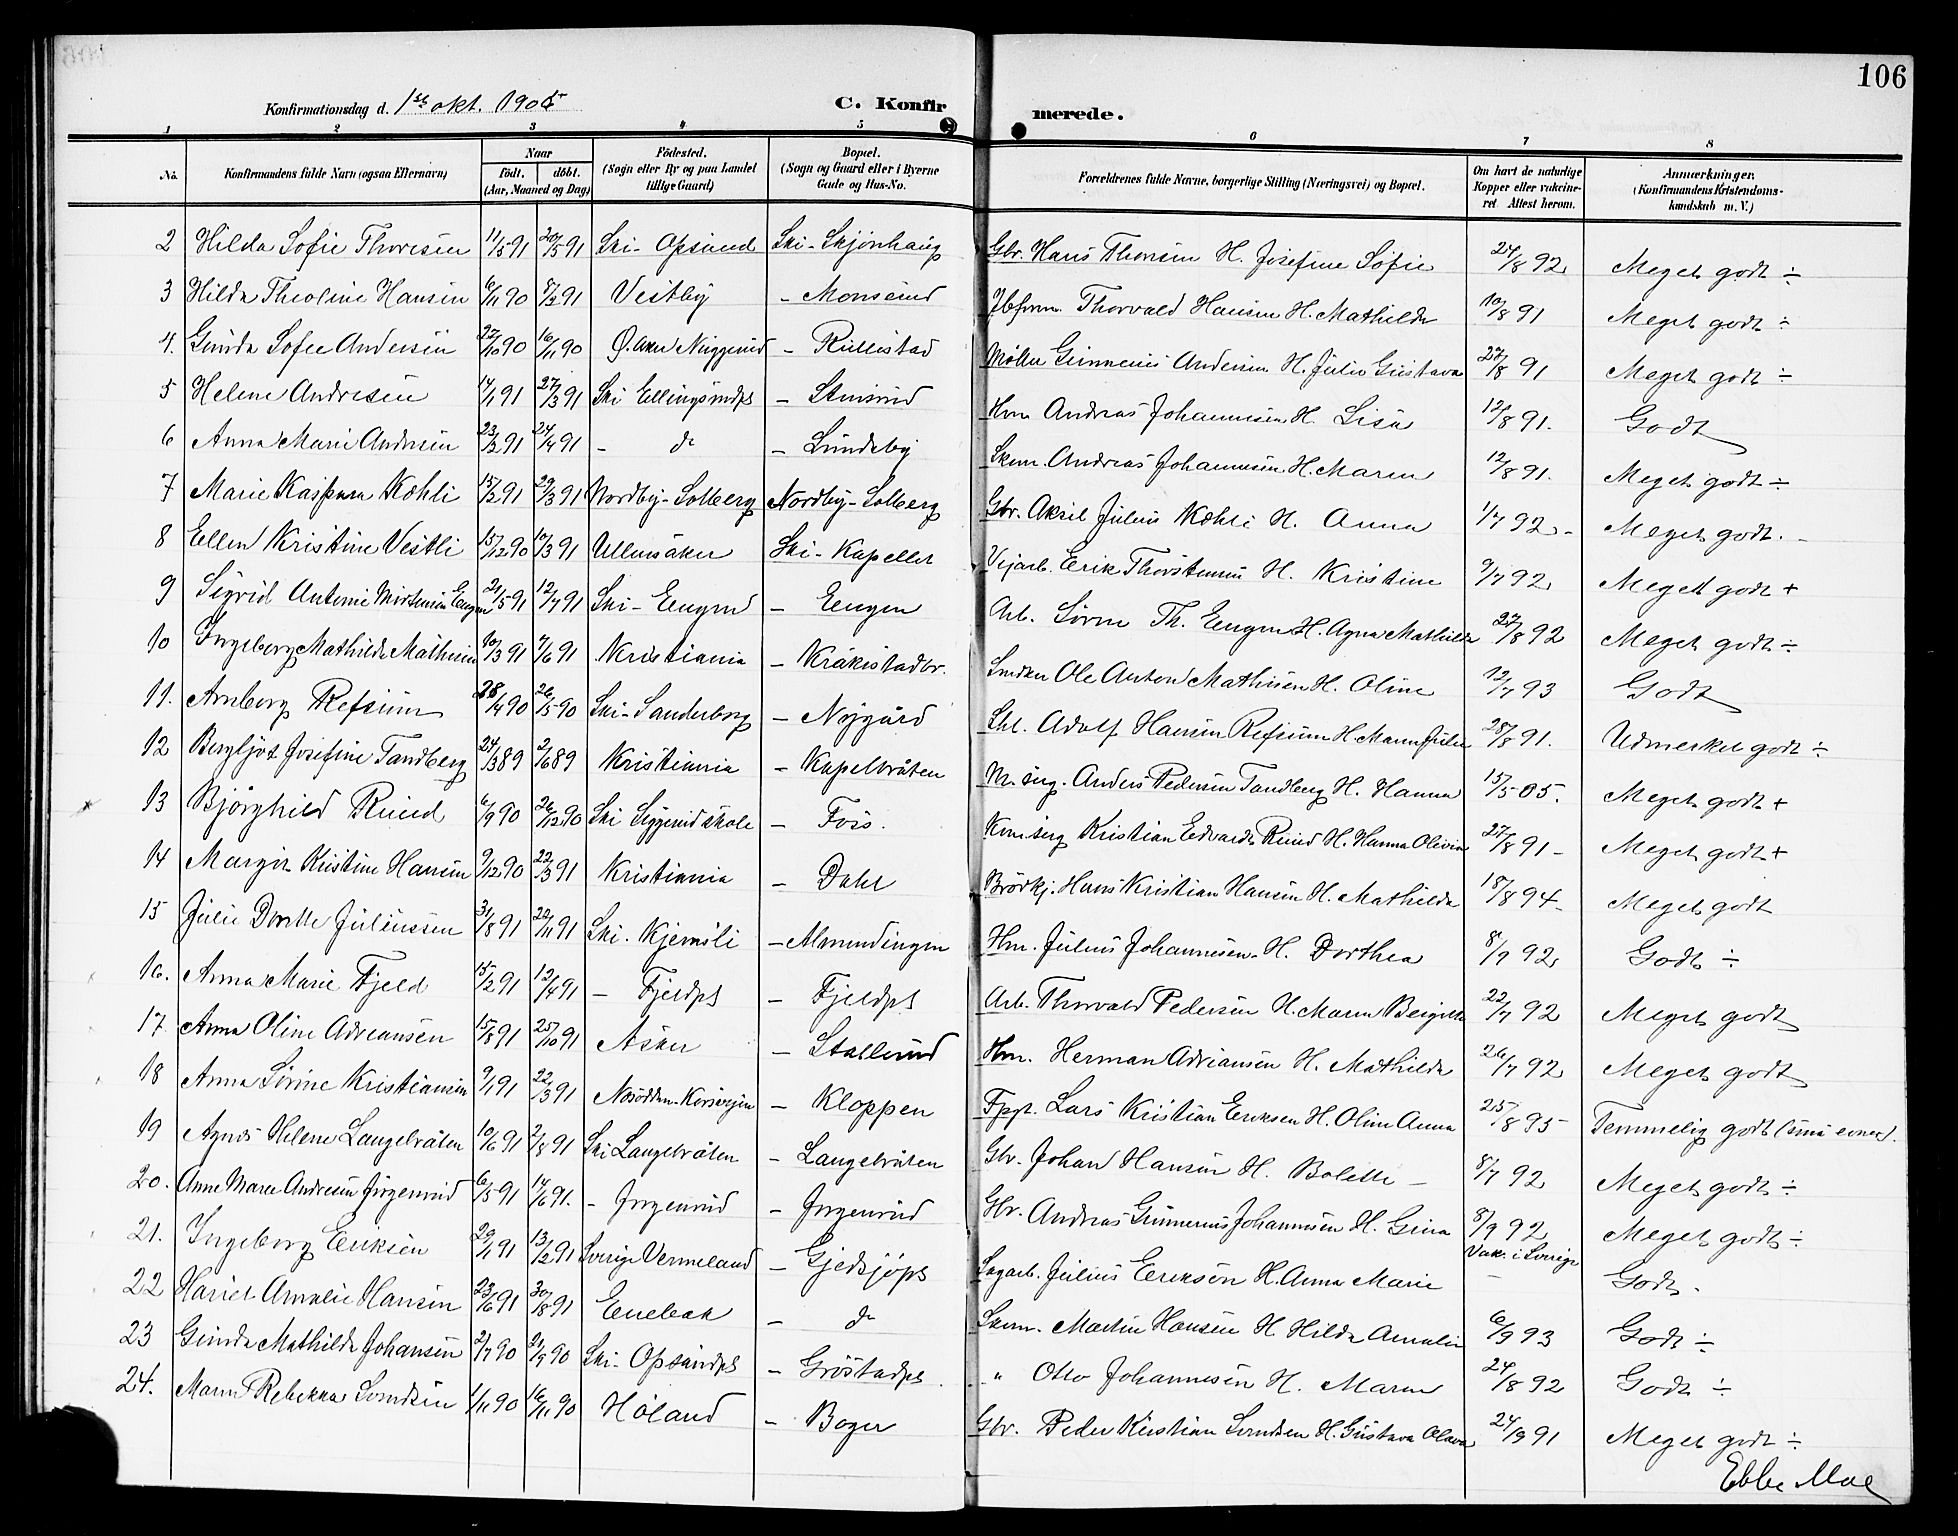 106
Konfirmationsdag d. 1ste okt. 1905
C. Konfirmerede.
1 2 3 4 5 6 7 8
No. Konfirmandens fulde Navn (ogsaa Efternavn) Naar født. døbt. (Aar, Maaned og Dag) Fødested. (Sogn eller By og paa Landet tillige Gaard) Bopæl. (Sogn og Gaard eller i Byerne Gade og Hus-No. Forældrenes fulde Navne, borgerlige Stilling (Næringsvei) og Bopæl. Om havt de naturlige Kopper eller vakcineret Attest herom. Anmærkninger. (Konfirmandens Kristendomskundskab m. V.)
2 Hilda Sofie Thoresen 11/5 91 20/5 91 Ski - Opsand Ski - Skjønhaug Gbr. Hans Thoresen H. Josefine Sofie 24/8 92 Meget godt ÷
3 Hilda Theoline Hansen 6/11 90 8/2 91 Vestby - Monsrud Thorvald Hansen H. Mathilde 10/8 91 Meget godt ÷
4. Gunda Sofie Andersen 22/10 90 16/11 90 Ø. Aker - Rullestad Møller Gunnerius Andersen H. Julie Gustava 27/8 91 Meget godt ÷
5 Helene Andresen 14/1 91 27/3 91 Ski Ellingsrudpl - Stensrud Hm Andreas Johannesen H. Lisa 12/8 91. Godt
6 Anna Marie Andersen 23/2 91 24/4 91 - do - Lundeby Skom. Andreas Johannesen H. Maren 12/8 91. Meget godt ÷
7 Marie Kaspara Kæhli 15/2 91 29/3 91 Nordby - Solberg Nordby - Solberg Gbr. Aksel Julius Kæhli H. Anna 1/7 92 - Meget godt. -
8 Ellen Kristine Vestli 15/12 90 10/3 91 Ullensaker Ski - Kapellet Vejarb. Erik Thorstensen H. Kristine 9/7 92 Meget godt +
9 Sigrid Antonie Mortensen Eengen 21/5 91 12/7 91 Ski - Eengen - Eengen Arb. Sören Th. Eengen H. Agna Mathilde 27/8 92 Meget godt ÷
10 Ingeborg Mathilde Mathisen 10/3 91 7/6 91 Kristiania - Kråkstadbr. Snedker Ole Anton Mathisen H. Oline 12/7 93 Godt
11. Arnborg Refsum 28/4 90 26/5 90 Ski - Sanderborg - Nygård Adolf Hansen Refsum H. Maren Julie 28/8 91. Udmerket godt ÷
12 Bergljot Josefine Tandberg 24/3 89 2/6 89 Kristiania - Kapelbråten Anders Pedersen Tandberg H. Hanna 15/5 05. Meget godt +
13 Bjørghild Ruud 6/9 90 26/12 90 Ski Siggerud skole - Foss. Kristian Edvardt Ruud H. Hanna Olivia 27/8 91 - Meget godt +
14 Margit Kristine Hansen 9/12 90 22/3 91 Kristiania - Dahl Brödkj. Hans Kristian Hansen H. Mathilde 18/8 94 - Meget godt
15 Julie Dorthe Juliussen 31/8 91 22/11 91 Ski - Kjemsli - Almendingen Hm. Julius Johannesen H. Dorthea 8/9 92 Godt ÷
16. Anna Marie Fjeld 15/2 91 12/4 91 - Fjeldpl - Fjeldpl Arb. Thorvald Pedersen H. Maren Bergitte 22/7 92 Meget godt
17. Anna Oline Adreansen 15/8 91 25/10 91 Asker - Stallerud Hm. Herman Adriansen H. Mathilde 26/7 92 Meget godt
18 Anna Sörine Kristiansen 9/1 91 22/3 91 Næsodden - Korsvejen - Kloppen Fpgt. Lars Kristian Eriksen H. Oline Anna 25/8 95 - Temmelig godt (små evner).
19 Agnes Helene Langebråten 10/6 91 2/8 91 Ski Langebråten - Langebråten Gbr. Johan Hansen H. Bolette - 8/7 92 Meget godt ÷
20. Anne Marie Andresen Jørgenrud 6/5 91 14/6 91. - Jørgenrud - Jørgenrud Gbr. Andreas Gunnerius Johannesen H. Gina 8/9 92 Meget godt ÷
21. Ingeborg Eriksen 29/1 91 13/2 91 Sverige Vermeland - Gjedsjøpl Sagarb. Julius Eriksen H. Anna Marie Vak. i Sverige - Godt.
22 Hariet Amalie Hansen 23/6 91 30/8 91 Enebak - do Skom. Martin Hansen H Hilda Amalie 6/9 93 Godt ÷
23 Gunda Mathilde Johansen 2/7 90 21/9 90 Ski - Opsandpl - Grøstadpl. " Otto Johannesen H. Maren 24/8 92 Godt ÷
24. Maren Rebekka Svendsen 1/11 90 16/11 90 Høland - Boger Gbr. Peder Kristian Svendsen H. Gustava Olava 24/9 91 Meget godt ÷
Ebbe Moe